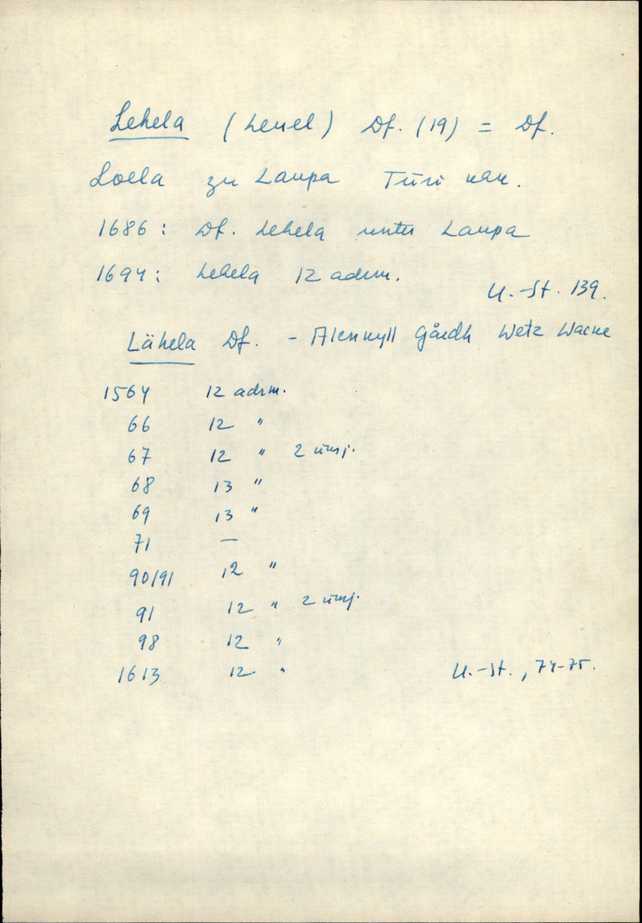 Lehela (Leuel) Df. (19) = Df.
Loella zu Laupa Türi
1686: Df. Lehela unter Laupa
1694: Lehela 12 adrm.
U.-St. 139.
Lähela Df. - gårdh Wetz Wacke
1564 12 adrm.
66 12 "
67 12 " 2 üksj.
68 13 "
69 13 "
71 —
90/91 12 "
91 12 " 2 üksj.
98 12 "
1613 12 "
U.-St., 74-75.